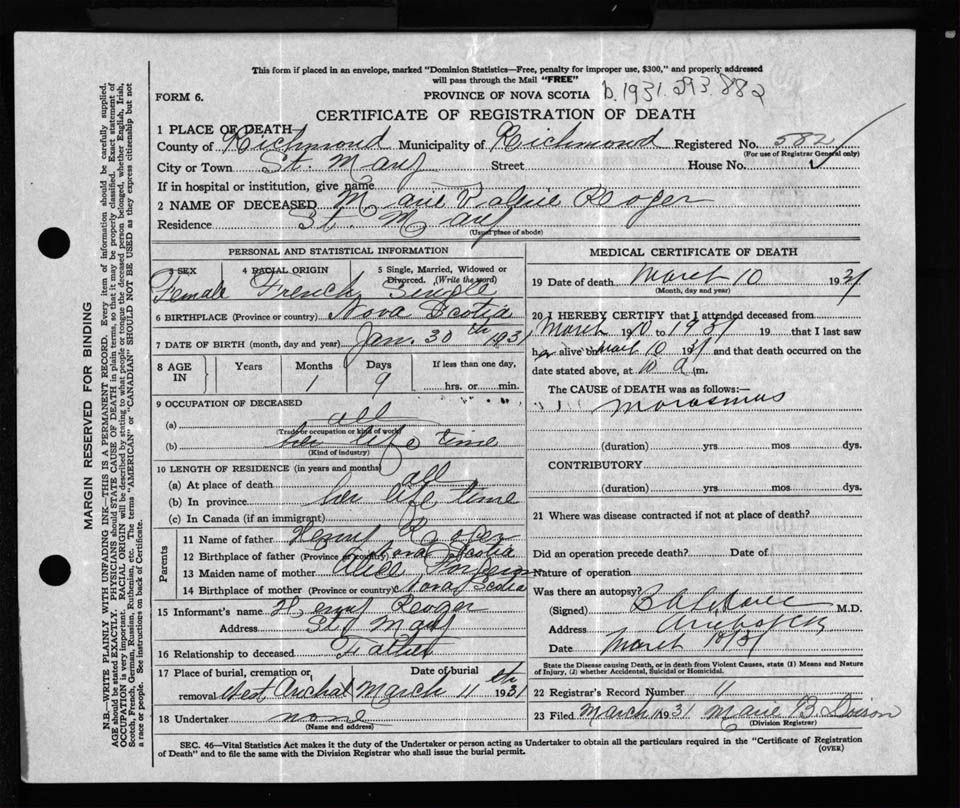 This form if placed in an envelope, marked "Dominion Statistics—Free, penalty for improper use, $300," and properly addressed
will pass through the Mail "FREE"
FORM 6.
PROVINCE OF NOVA SCOTIA b.1931. 882
CERTIFICATE OF REGISTRATION OF DEATH
1 PLACE OF DEATH
County of Richmond Municipality of Richmond Registered No. 582
(For use of Registrar General only)
City or Town St. Mary Street House No.
If in hospital or institution, give name
2 NAME OF DECEASED Marie Reoger
Residence St. Mary
(Usual place of abode)
PERSONAL AND STATISTICAL INFORMATION
3 SEX 4 RACIAL ORIGIN 5 Single, Married, Widowed or Divorced. (Write the word)
Female French Single
6 BIRTHPLACE (Province or country) Nova Scotia
7 DATE OF BIRTH (month, day and year) Jan. 30th 1931
8 AGE IN Years Months Days If less than one day,
1 9 hrs. or min.
9 OCCUPATION OF DECEASED
(a) all
(Trade or occupation or kind of work)
(b) her life time
(Kind of industry)
10 LENGTH OF RESIDENCE (in years and months)
(a) At place of death all
(b) In province her life time
(c) In Canada (if an immigrant)
Parents
11 Name of father Henry Reoger
12 Birthplace of father (Province or country) Nova Scotia
13 Maiden name of mother Alice
14 Birthplace of mother (Province or country) Nova Scotia
15 Informant's name Henry Reoger
Address St. Mary
16 Relationship to deceased Father
17 Place of burial, cremation or removal West Arichat Date of burial March 11th 1931
18 Undertaker none
(Name and address)
MEDICAL CERTIFICATE OF DEATH
19 Date of death March 10 1931
(Month, day and year)
20 I HEREBY CERTIFY that I attended deceased from
March 10 to 1931 19 that I last saw
her alive on March 10 1931 and that death occurred on
date stated above, at 10 a.m.
The CAUSE of DEATH was as follows:—
Morasmus
(duration) yrs mos dys.
CONTRIBUTORY
(duration) yrs mos dys.
21 Where was disease contracted if not at place of death?
Did an operation precede death? Date of
Nature of operation
Was there an autopsy?
(Signed) M.D.
Address
Date March 10/31
State the Disease causing Death, or in death from Violent Causes, state (1) Means and Nature
of Injury, (2) whether Accidental, Suicidal or Homicidal.
22 Registrar's Record Number 11
23 Filed March 1931 Marie B.
(Division Registrar)
SEC. 46—Vital Statistics Act makes it the duty of the Undertaker or person acting as Undertaker to obtain all the particulars required in the "Certificate of Registration
of Death" and to file the same with the Division Registrar who shall issue the burial permit. (OVER)
MARGIN RESERVED FOR BINDING
N.B.—WRITE PLAINLY WITH UNFADING INK—THIS IS A PERMANENT RECORD. Every item of information should be carefully supplied.
AGE should be stated EXACTLY. PHYSICIANS should STATE CAUSE OF DEATH in plain terms, so that it may be properly classified. Exact statement of
OCCUPATION is very important. RACIAL ORIGIN will be described by stating to what people or tongue the deceased person belonged, whether English, Irish,
Scotch, French, German, Russian, Ruthenian, etc. The terms "AMERICAN" or "CANADIAN" SHOULD NOT BE USED as they express citizenship but not
a race or people. See instructions on back of Certificate.